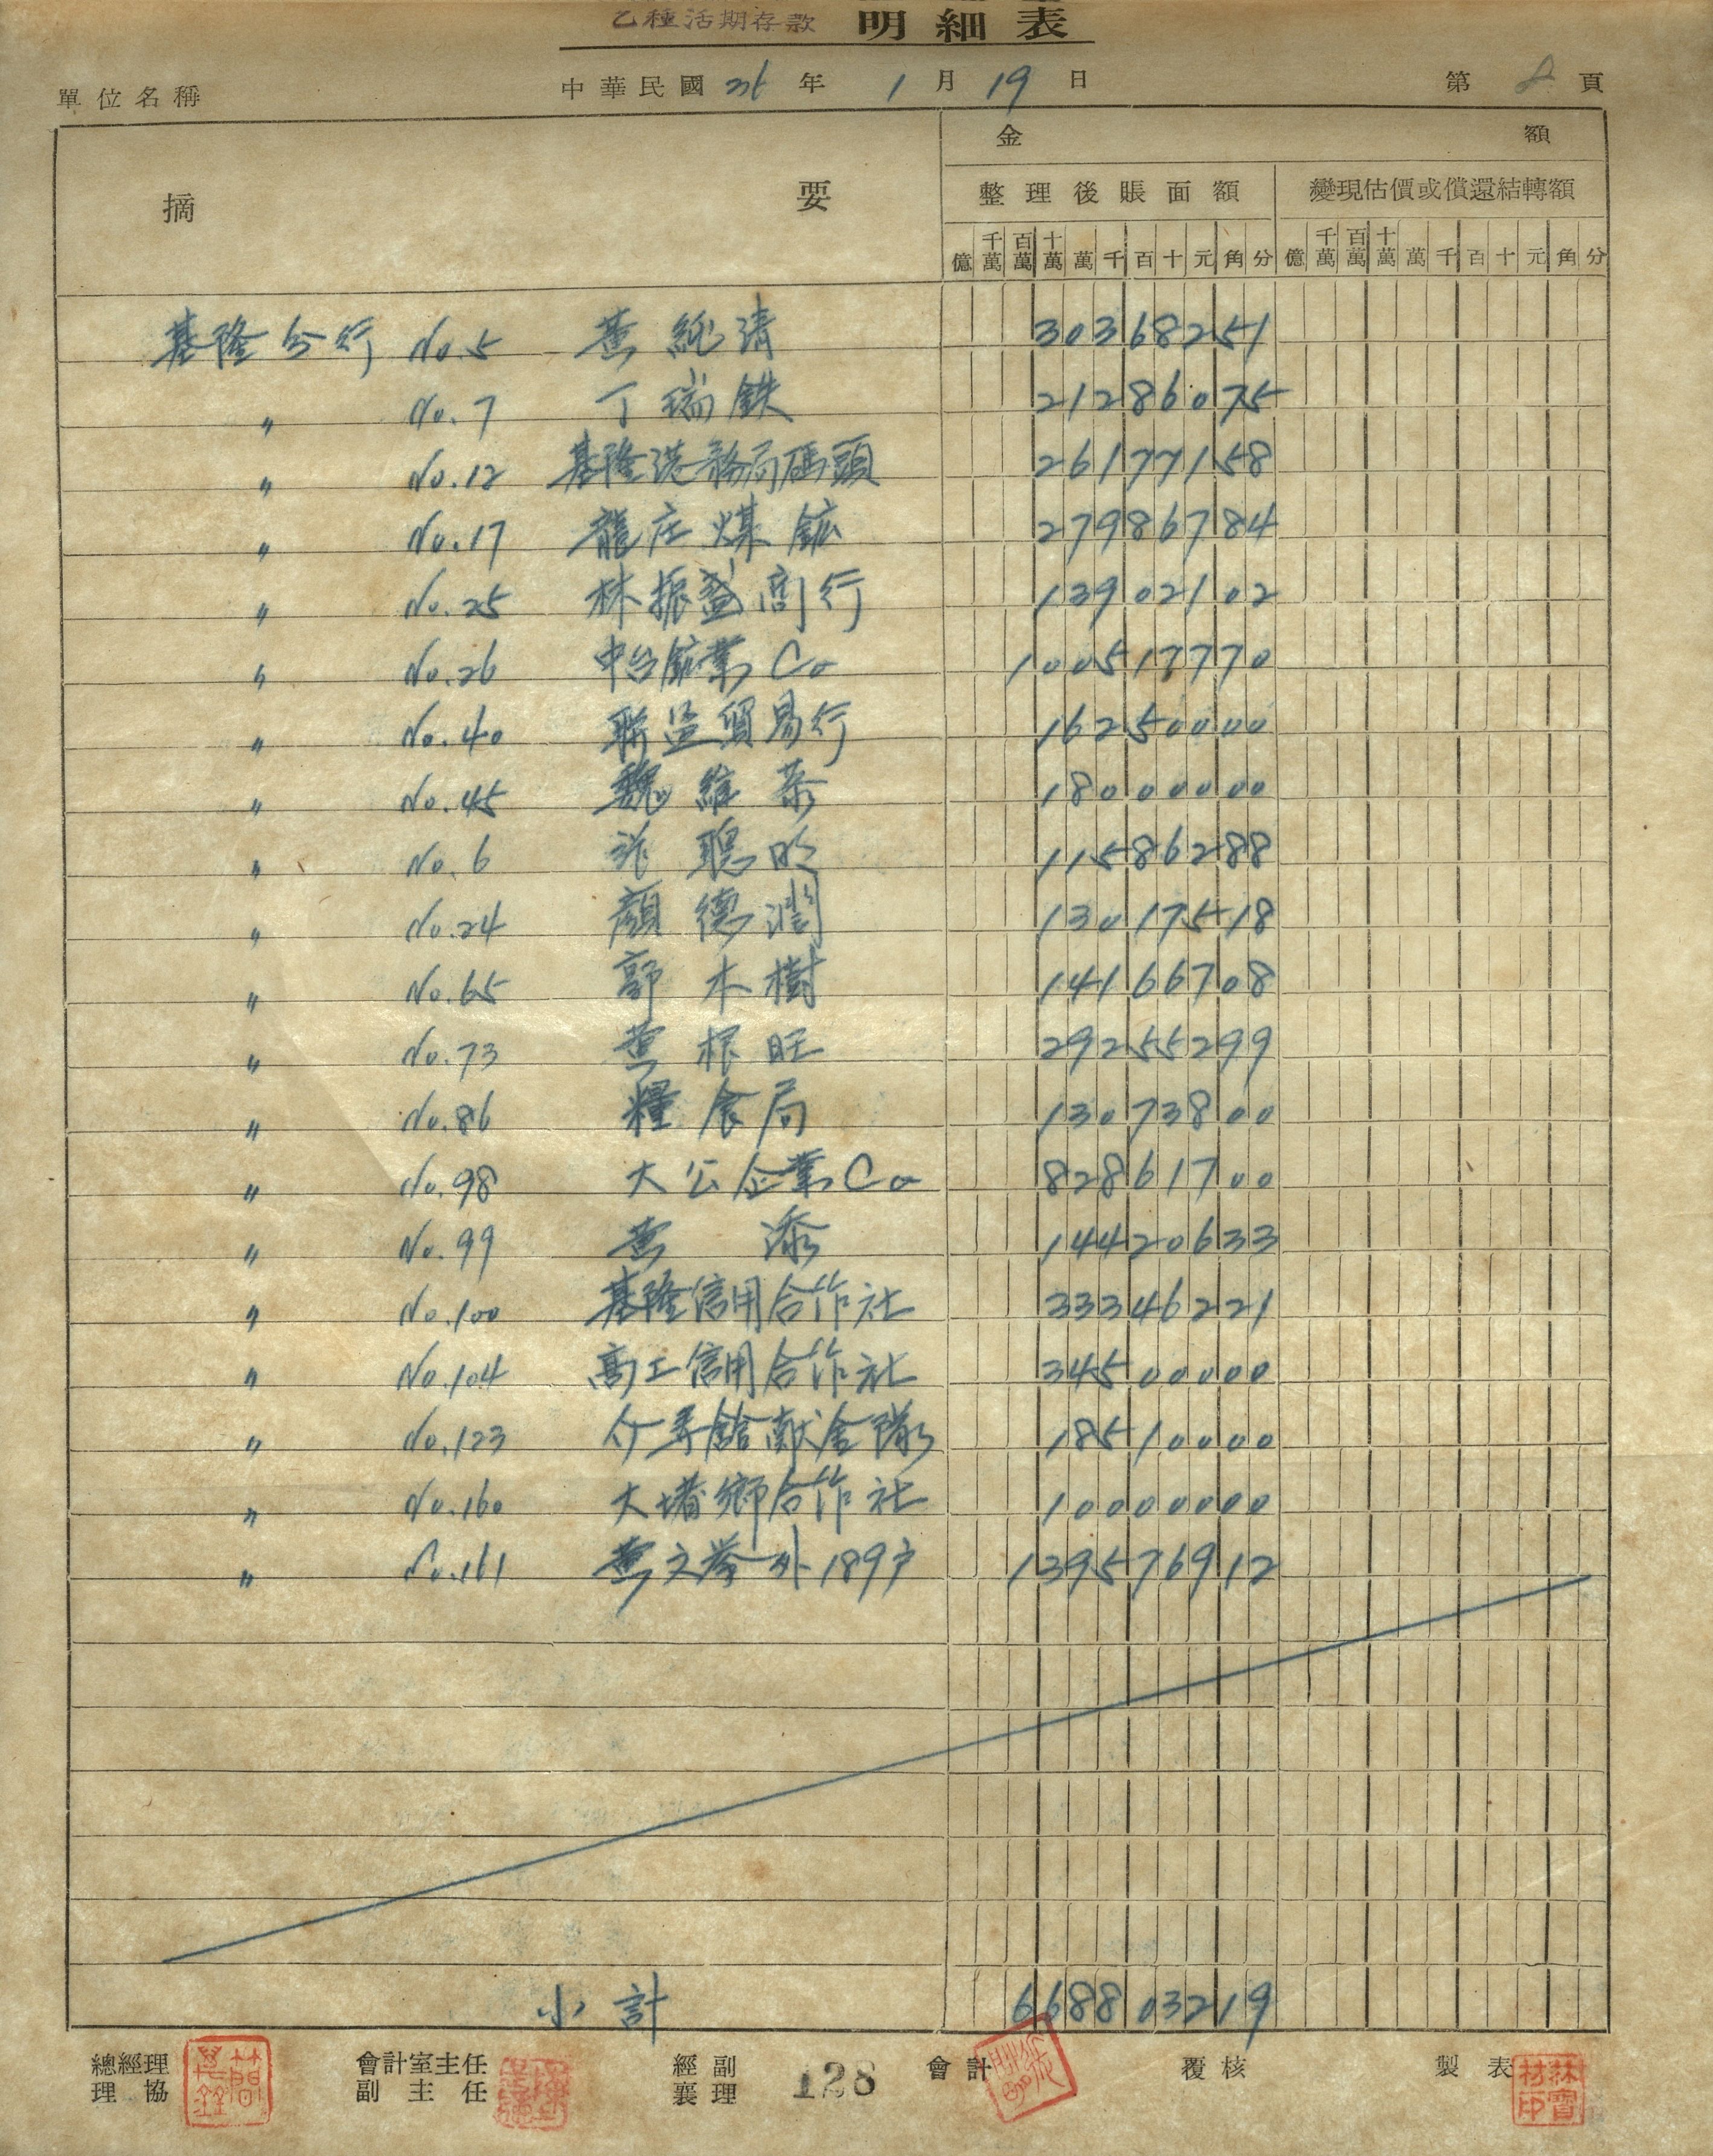 乙種活期存款 明細表
單位名稱 中華民國 36 年 1 月 19 日 第 2 頁
摘 要 金 額
整理後賬面額 變現估價或償還結轉額
億 千萬 百萬 十萬 萬 千 百 十 元 角 分 億 千萬 百萬 十萬 萬 千 百 十 元 角 分
基隆分行 No.5 黄純清 30368251
〃 No.7 丁瑞鉄 21286075
〃 No.12 基隆港務局碼頭 26177158
〃 No.17 龍庄煤鉱 27986784
〃 No.25 林振盛商行 13902102
〃 No.26 中台鉱業Co 100517770
〃 No.40 聯益貿易行 16250000
〃 No.45 魏維恭 18000000
〃 No.6 許聰明 11586288
〃 No.24 顔德潤 13017518
〃 No.65 郭木樹 14166708
〃 No.73 黄根旺 29255299
〃 No.86 糧食局 13073800
〃 No.98 大公企業Co 82861700
〃 No.99 黄添 14420633
〃 No.100 基隆信用合作社 33346221
〃 No.104 高工信用合作社 34500000
〃 No.123 18510000
〃 No.160 大堵鄉合作社 10000000
〃 No.161 黄文举外189户 139576912
小計 668803219
總經理 會計室主任 經副 128 會計 覆核 製表
理協 副主任 襄理
林寶材印